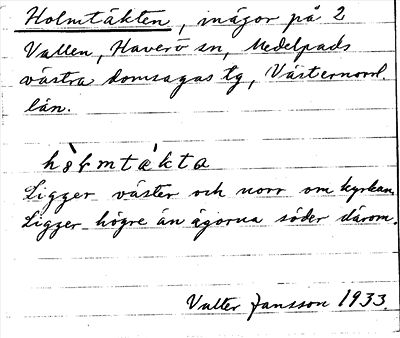 Holmtäkten, inägor på 2
Vallen, Haverö sn, Medelpads
västra domsagas tg, Västernorrl.
län.
hòłmtàkta
Ligger väster och norr om kyrkan.
Ligger högre än ägorna söder därom.
Valter Jansson 1933.